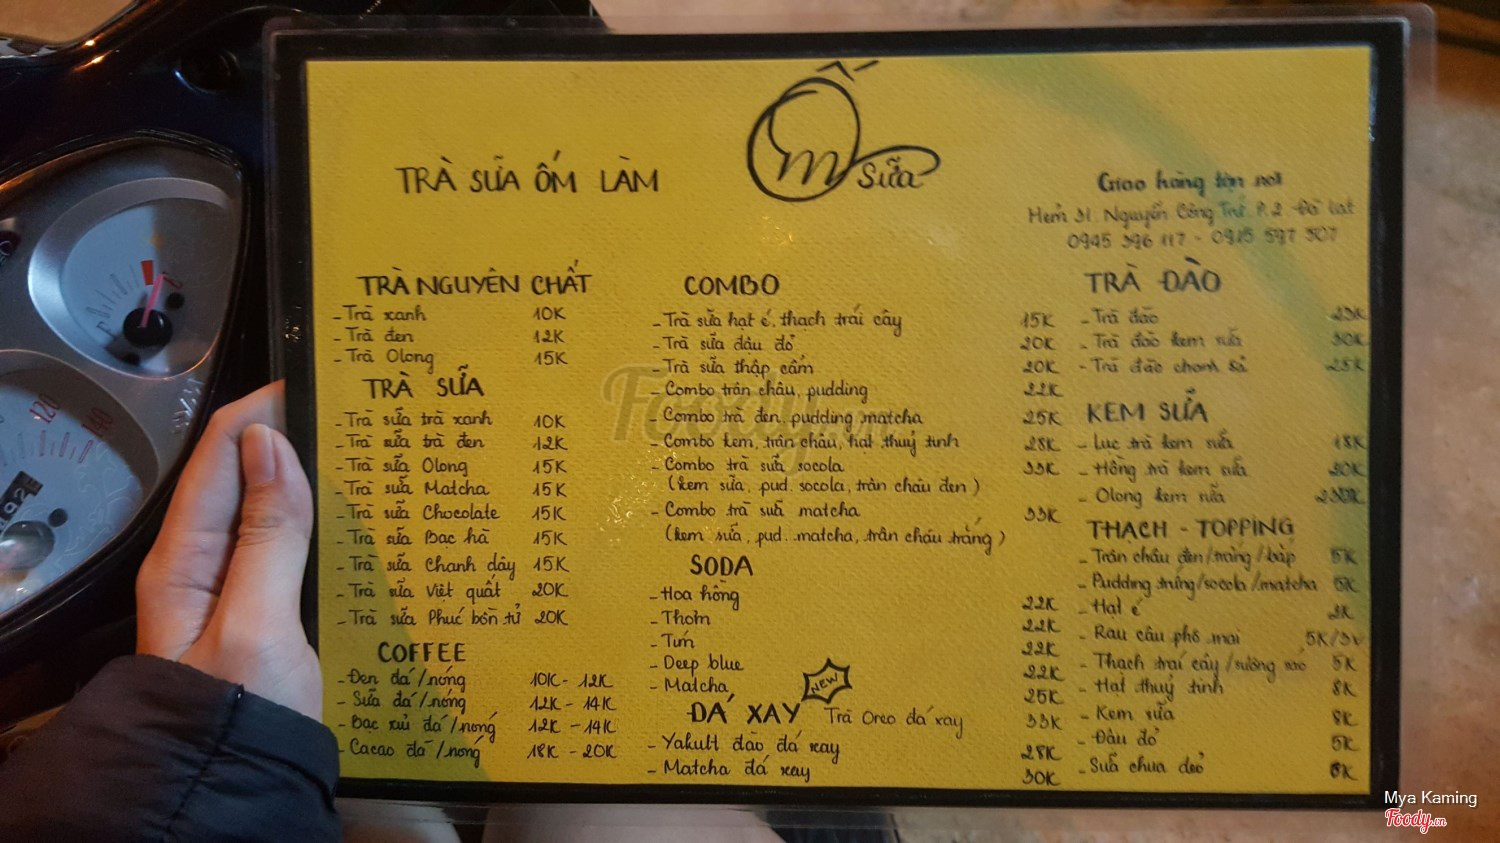 Ốm Sữa
TRÀ SỮA ỐM LÀM
Giao hàng tận nơi
Hẻm 31 Nguyễn Công Trứ. P.2. Đà Lạt
0945 396 117 - 0915 597 507
TRÀ NGUYÊN CHẤT
- Trà xanh 10K
- Trà đen 12K
- Trà Olong 15K
TRÀ SỮA
- Trà sữa trà xanh 10K
- Trà sữa trà đen 12K
- Trà sữa Olong 15K
- Trà sữa Matcha 15K
- Trà sữa Chocolate 15K
- Trà sữa Bạc hà 15K
- Trà sữa Chanh dây 15K
- Trà sữa Việt quất 20K
- Trà sữa Phúc bồn tử 20K
COFFEE
- Đen đá/nóng 10K - 12K
- Sữa đá/nóng 12K - 14K
- Bạc xỉu đá/nóng 12K - 14K
- Cacao đá/nóng 18K - 20K
COMBO
- Trà sữa hạt é, thạch trái cây 15K
- Trà sữa đậu đỏ 20K
- Trà sữa thập cẩm 20K
- Combo trân châu, pudding 22K
- Combo trà đen, pudding matcha 25K
- Combo kem, trân châu, hạt thuỷ tinh 28K
- Combo trà sữa socola 33K
(kem sữa, pud. socola, trân châu đen)
- Combo trà sữa matcha 33K
(kem sữa, pud. matcha, trân châu trắng)
SODA
- Hoa hồng 22K
- Thơm 22K
- Tím 22K
- Deep blue 22K
- Matcha 25K
ĐÁ XAY NEW Trà Oreo đá xay 33K
- Yakult đào đá xay 28K
- Matcha đá xay 30K
TRÀ ĐÀO
- Trà đào
- Trà đào kem sữa 30K
- Trà đào chanh sả 25K
KEM SỮA
- Lục trà kem sữa 18K
- Hồng trà kem sữa 20K
- Olong kem sữa
THẠCH - TOPPING
- Trân châu đen/trắng/bắp 5K
- Pudding trứng/socola/matcha 5K
- Hạt é 2K
- Rau câu phô mai 5K/3v
- Thạch trái cây/sương sáo 5K
- Hạt thuỷ tinh 8K
- Kem sữa 8K
- Đậu đỏ 5K
- Sữa chua dẻo
120
140
Foody.vn
Mya Kaming
Foody.vn